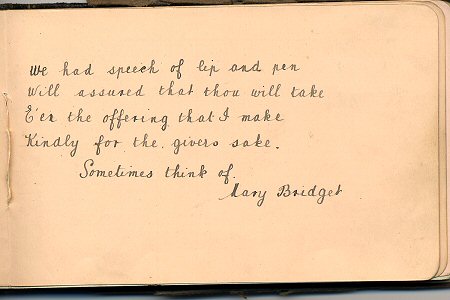 We had speech of lip and pen
Will assured that thou will take
E'en the offering that I make
Kindly for the givers sake.
Sometimes think of.
Mary Bridget